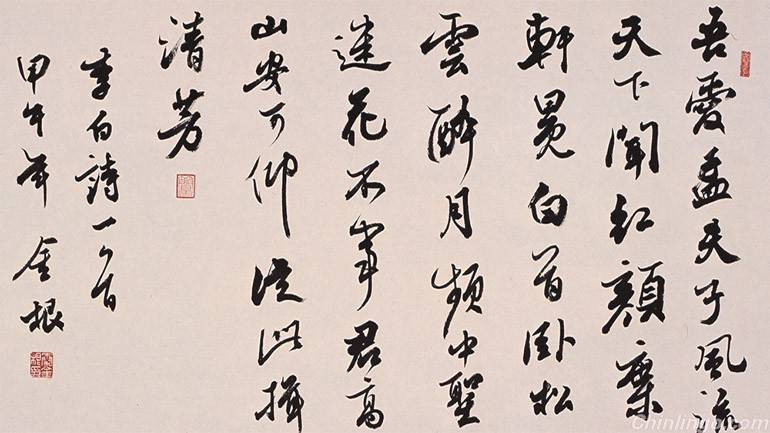 吾愛孟夫子風流
天下聞紅顏棄
軒冕白首臥松
雲醉月頻中聖
迷花不事君高
山安可仰從此揖
清芬
李白詩一首
甲午年 金根
Chinlingo.com